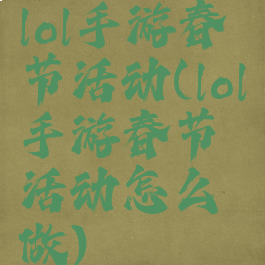 lol手游春
节活动(lol
手游春节
活动怎么
做)